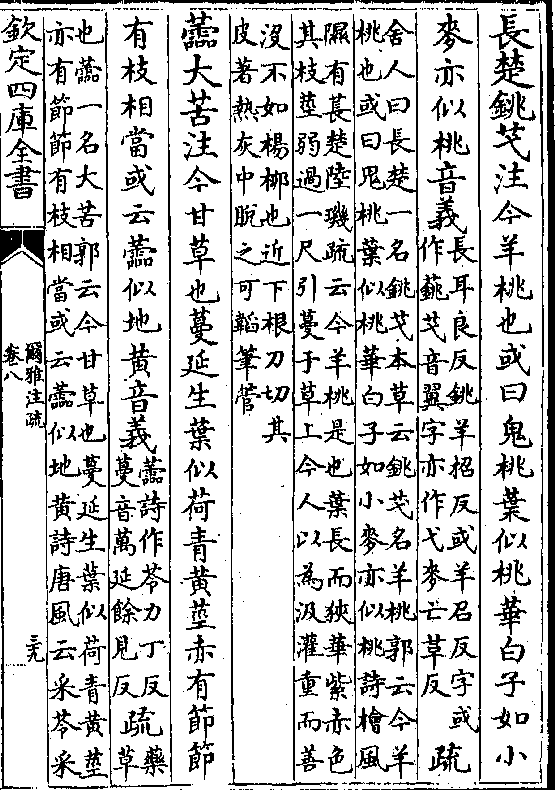 長楚銚芅注今羊桃也或曰鬼桃葉似桃華白子如小
麥亦似桃音義
長耳良反銚羊招反或羊召反字或
作蓧芅音翼字亦作弋麥亡草反
疏
舍人曰長楚一名銚芅本草云銚芅名羊桃郭云今羊
桃也或曰鬼桃葉似桃華白子如小麥亦似桃詩檜風
隰有萇楚陸璣疏云今羊桃是也葉長而狹華紫赤色
其枝莖弱過一尺引蔓于草上今人以為汲灌重而善
沒不如楊柳也近下根刀切其
皮著熱灰中脫之可韜筆管
蘦大苦注今甘草也蔓延生葉似荷青黃莖赤有節節
有枝相當或云蘦似地黃音義
蘦詩作苓力丁反
蔓音萬延餘見反
疏
藥
草
也蘦一名大苦郭云今甘草也蔓延生葉似荷青黃莖
亦有節節有枝相當或云蘦似地黃詩唐風云采苓采
欽定四庫全書
爾雅注疏
卷八
三九